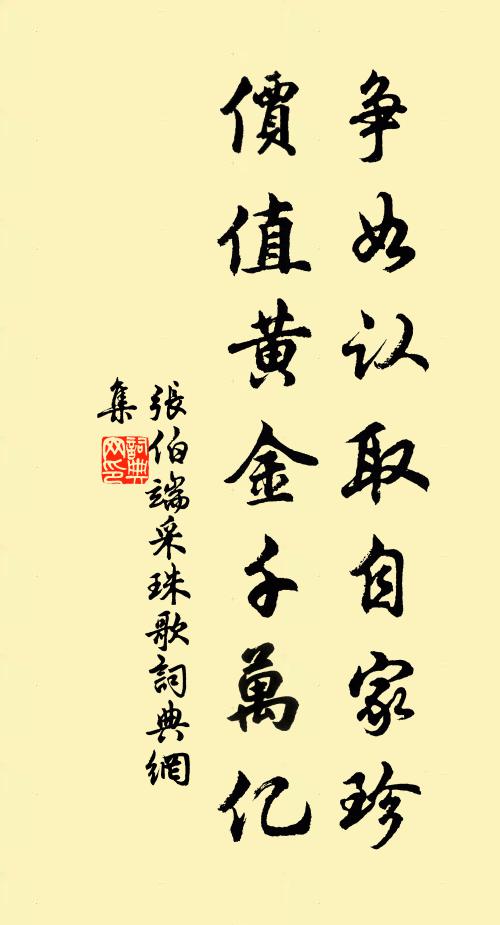 争如认取自家珍
價值黄金千萬亿
張伯端采珠歌詞典網
集
詞典
网印